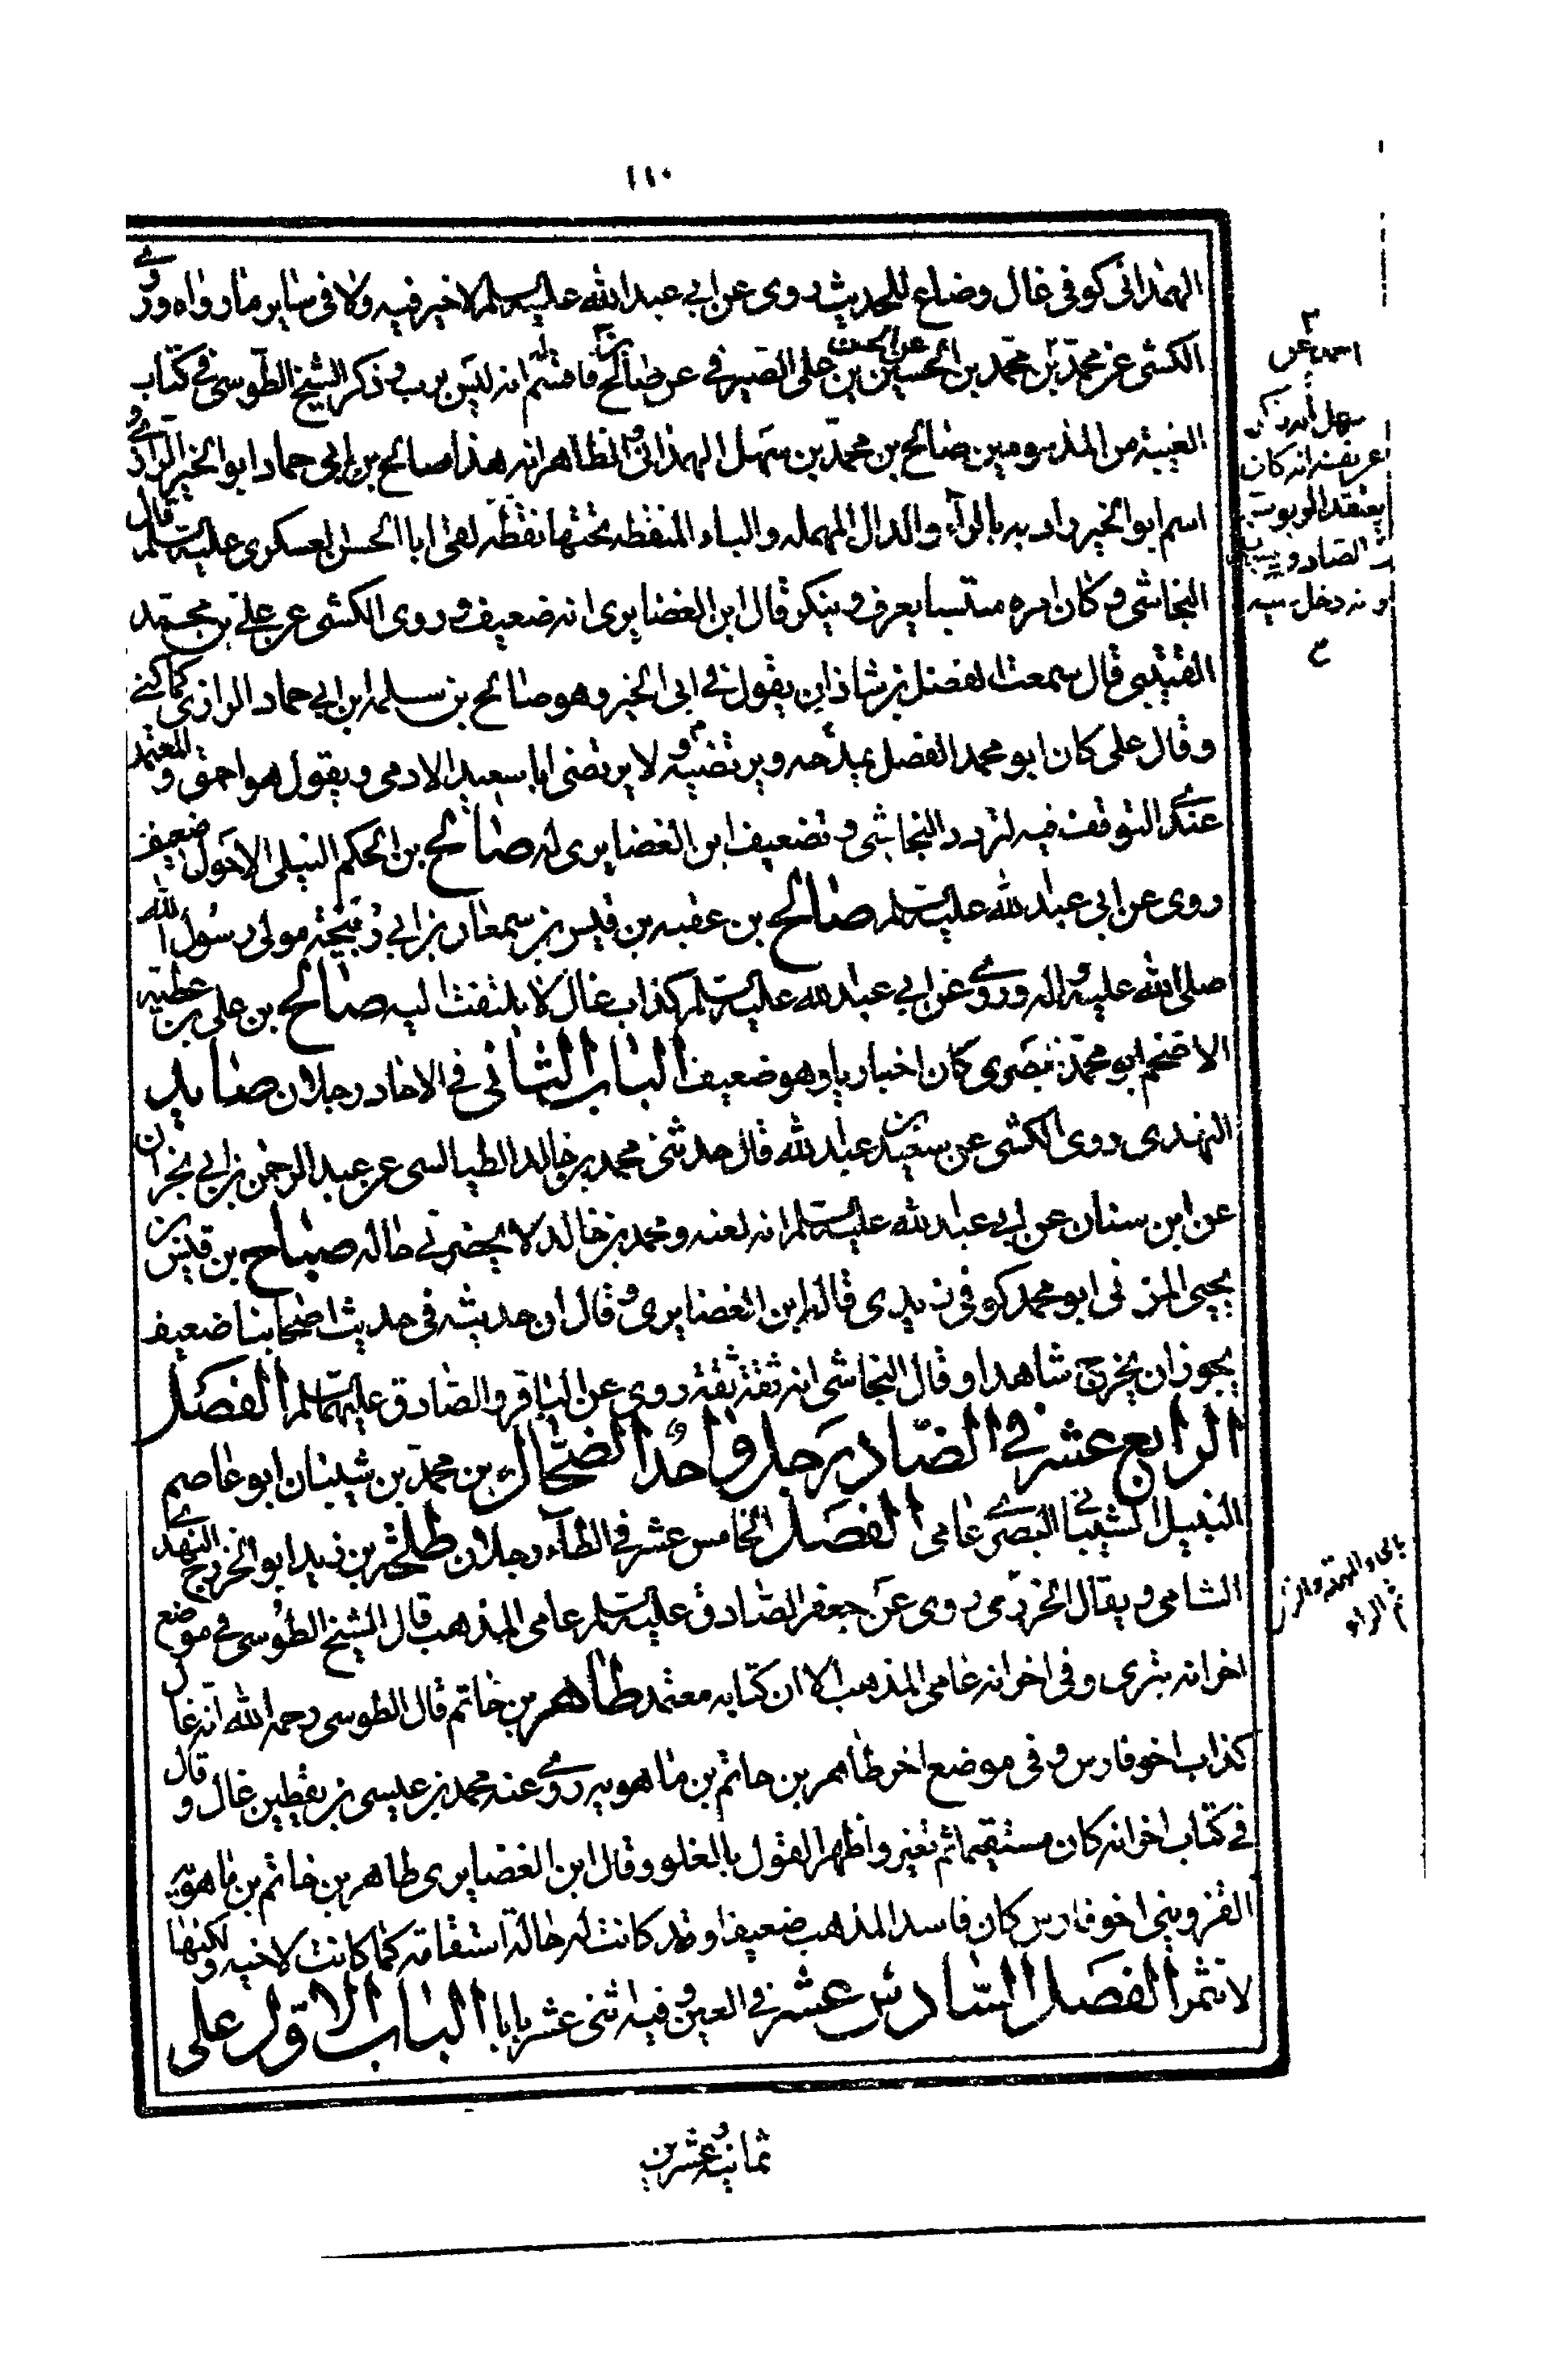 ١١٠
الهمداني كوفي غال وضاع للحديث روى عن ابي عبد الله عليه السلم لا خير فيه ولا في ساير ما رواه وروى
الكشي عن محمد بن محمد بن الحسين بن علي الصيرفي عن صالح انه ليس برب وذكر الشيخ الطوسي في كتاب
الغيبة من المذمومين صالح بن محمد بن سهل الهمداني والظاهر انه هذا صالح بن ابي حماد ابو الخير الرازي و
اسم ابو الخير زاد به بالزاء والدال المهملة والباء المنقطة تحتها نقطة لقى ابا الحسن العسكري عليه السلم قال
النجاشي وكان امره ملتبسا يعرف وينكر قال ابن الغضايري انه ضعيف وروى الكشي عن علي بن محمد
القتيبي قال سمعت الفضل بن شاذان يقول في ابي الخير وهو صالح بن سلمة ابن ابي حماد الرازي كما كني
وقال علي كان ابو محمد الفضل يمدحه ويرتضيه ولا يرتضي ابا سعيد الادمي ويقول هو احمق و المعتمد
عندي التوقف فيه لتردد النجاشي وتضعيف ابن الغضايري له صالح بن الحكم النيلي الاحول ضعيف
روى عن ابي عبد الله عليه السلم صالح بن عقبه بن قيس بن سمعان بن ابي ربيحة مولى رسول الله
صلى الله عليه واله وروى عن ابي عبد الله عليه السلم كذاب غال لا يلتفت اليه صالح بن علي بن عطية
الاضخم ابو محمد بصري كان اخباريا وهو ضعيف الباب الثاني في الاحاد رجلان صايد
النهدي روى الكشي عن سعد بن عبد الله قال حدثني محمد بن خالد الطيالسي عن عبد الرحمن بن ابي نجران
عن ابن سنان عن ابي عبد الله عليه السلم انه لعنه ومحمد بن خالد لا يحضرني حاله صباح بن قيس بن
يحيى المزني ابو محمد كوفي زيدي قاله ابن الغضايري وقال ان حديثه في حديث اصحابنا ضعيف
يجوز ان يخرج شاهدا وقال النجاشي انه ثقة ثقة روى عن الباقر والصادق عليهما السلم الفصل
الرابع عشر في الضاد رجل واحد الضحاك بن محمد بن شيبان ابو عاصم
النبيل الشيباني البصري عامي الفصل الخامس عشر في الطاء رجلان طلحة بن زيد ابو الخزرج النهدي
الشامي ويقال الخزري روى عن جعفر الصادق عليه السلم عامي المذهب قال الشيخ الطوسي في موضع
اخر انه بتري وفي اخر انه عامي المذهب الا ان كتابه معتمد طاهر بن حاتم قال الطوسي رحمه الله انه غال
كذاب اخو فارس وفي موضع اخر طاهر بن حاتم بن ماهويه روى عنه محمد بن عيسى بن يقطين غال و قال
في كتاب اخر انه كان مستقيما ثم تغير واظهر القول بالغلو وقال ابن الغضايري طاهر بن حاتم بن ماهويه
القزويني اخو فارس كان فاسد المذهب ضعيفا وقد كانت له حالة استقامة كما كانت لاخيه ولكنها
لا تثمر الفصل السادس عشر في العين وفيه اثني عشر بابا الباب الاول علي
ثمانية وعشرين
يعتقد الربوبية
الصادق
وانه دخل
بالحاء المهملة والزاي
ثم الراء